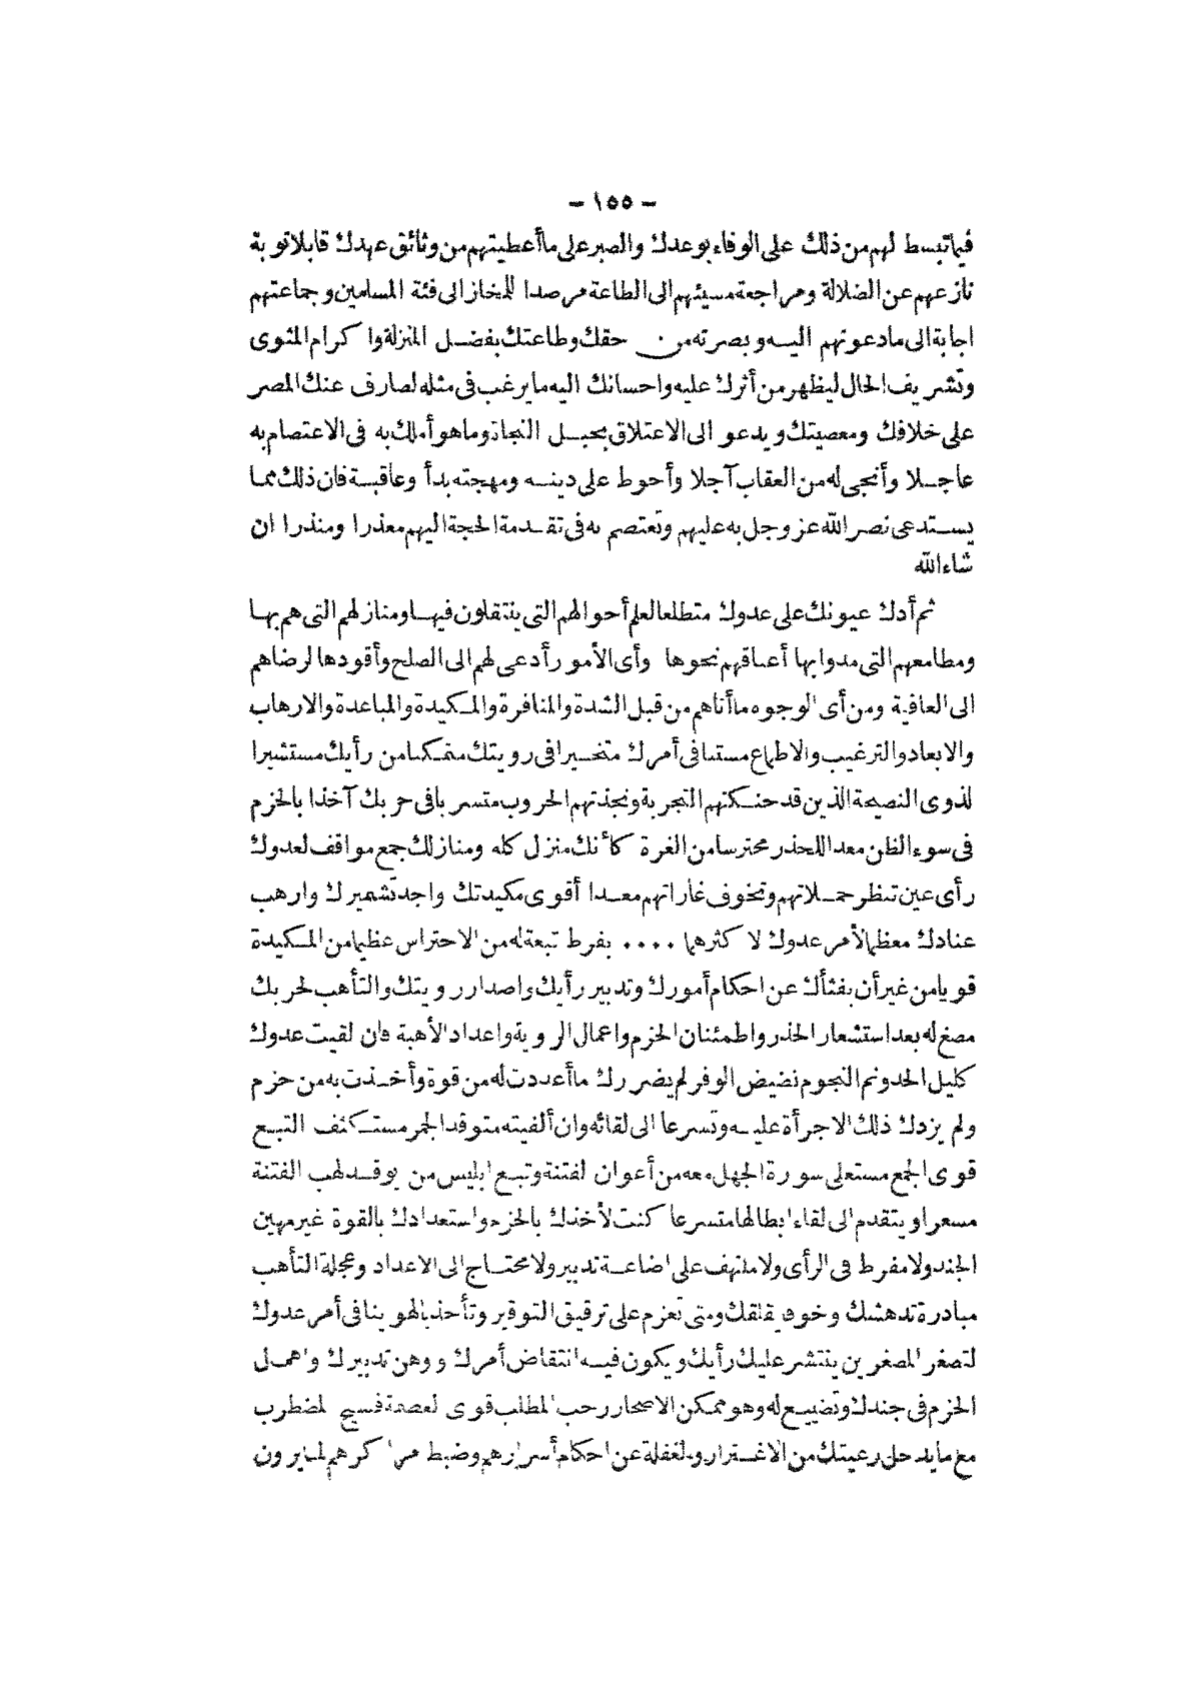 - ١٥٥ -
فيما تبسط لهم من ذلك على الوفاء بوعدك والصبر على ما أعطيتهم من وثائق عهدك قابلا توبة
نازعهم عن الضلالة ومراجعة مسيئهم الى الطاعة مرصدا للمنحاز الى فئة المسلمين وجماعتهم
اجابة الى ما دعوتهم اليه وبصرته من حقك وطاعتك بفضل المنزلة واكرام المثوى
وتشريف الحال ليظهر من أثرك عليه واحسانك اليه ما يرغب فى مثله لصارف عنك المصر
على خلافك ومعصيتك ويدعو الى الاعتلاق بحبل النجاة وما هو أملك به فى الاعتصام به
عاجلا وأنجى له من العقاب آجلا وأحوط على دينه ومهجته بدأ وعاقبة فان ذلك مما
يستدعى نصر الله عز وجل به عليهم وتعتصم به فى تقدمة الحجة اليهم معذرا ومنذرا ان
شاء الله
ثم أدك عيونك على عدوك متطلعا لعلم أحوالهم التى ينتقلون فيها ومنازلهم التى هم بها
ومطامعهم التى مدوا بها أعناقهم نحوها وأى الأمور أدعى لهم الى الصلح وأقودها لرضاهم
الى العافية ومن أى الوجوه ما أناهم من قبل الشدة والمنافرة والمكيدة والمباعدة والارهاب
والابعاد والترغيب والاطماع مستنا فى أمرك متخيرا فى رويتك متمكنا من رأيك مستشيرا
لذوى النصيحة الذين قد حنكتهم التجربة ونجذتهم الحروب متسربا فى حربك آخذا بالحزم
فى سوء الظن معدا للحذر محترسا من الغرة كأنك منزل كله ومنازلك جمع مواقف لعدوك
رأى عين تنظر حملاتهم وتخوف غاراتهم معدا أقوى مكيدتك واجد تشميرك وارهب
عنادك معظما لأمر عدوك لا كثرهما .... بفرط تبعة له من الاحتراس عظيما من المكيدة
قويا من غير أن يفثأك عن احكام أمورك وتدبير رأيك واصدار رويتك والتأهب لحربك
مصغ له بعد استشعار الحذر واطمئنان الحزم واعمال الروية واعداد الأهبة فان لقيت عدوك
كليل الحد ونم النجوم نضيض الوفر لم يضررك ما أعددت له من قوة وأخذت به من حزم
ولم يزدك ذلك الا جرأة عليه وتسرعا الى لقائه وان ألفيته متوقد الجمر مستكثف التبع
قوى الجمع مستعلى سورة الجهل معه من أعوان لفتنة وتبع ابليس من يوقد لهب الفتنة
مسعرا ويتقدم الى لقاء ابطالها متسرعا كنت لأخذك بالحزم واستعدادك بالقوة غير مهين
الجند ولا مفرط فى الرأى ولا ملتهف على اضاعة تدبير ولا محتاج الى الاعداد وعجلة التأهب
مبادرة تدهشك وخوف يقلقك ومتى تعزم على ترقيق التوقير وتأخذ بالهوينا فى أمر عدوك
لتصغر المصغرين ينتشر عليك رأيك ويكون فيه انتقاض أمرك ووهن تدبيرك واهمل
الحزم فى جندك وتضييع له وهو ممكن الاصحار رحب المطلب قوى لعصمة فسيح لمضطرب
مع ما يدخل رعيتك من الاغترار ولغفلة عن احكام أسرارهم وضبط مراكرهم لما يرون